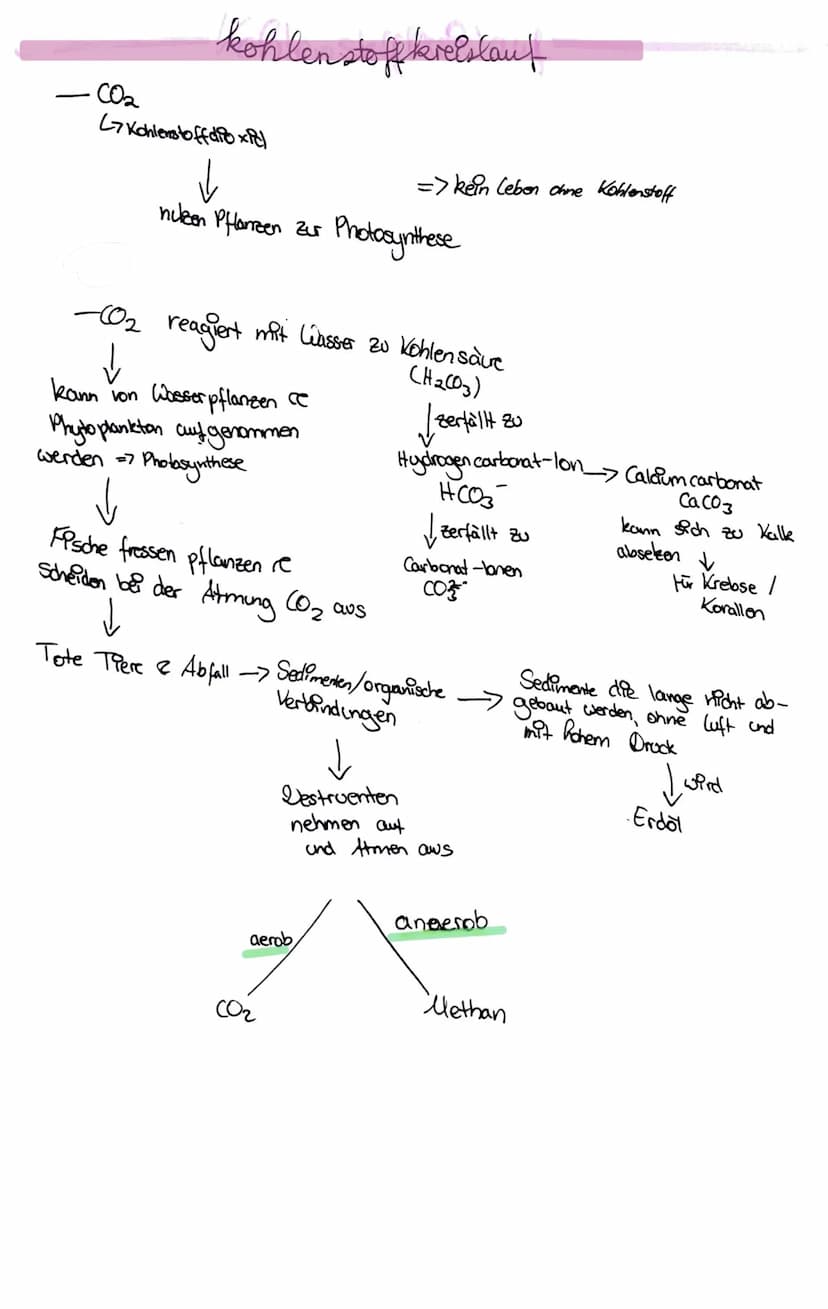 Kohlenstoffkreislauf
— CO₂
↳ Kohlenstoffdioxid
↓
=> kein Leben ohne Kohlenstoff
nutzen Pflanzen zur Photosynthese
— CO₂ reagiert mit Wasser zu Kohlensäure
(H₂CO₃)
↓
kann von Wasserpflanzen &
Phytoplankton aufgenommen
werden => Photosynthese
↓ zerfällt zu
Hydrogencarbonat-Ion → Calciumcarbonat
HCO₃⁻
CaCO₃
kann sich zu Kalk
absetzen ↓
für Krebse /
Korallen
↓ zerfällt zu
Carbonat-Ionen
CO₃²⁻
↓
Fische fressen pflanzen &
Scheiden bei der Atmung CO₂ aus
↓
Tote Tiere & Abfall → Sedimenten/organische
Verbindungen
→ Sedimente die lange nicht ab-
gebaut werden, ohne Luft und
mit hohem Druck
↓ wird
Erdöl
↓
Destruenten
nehmen auf
und Atmen aus
aerob
anaerob
CO₂
Methan